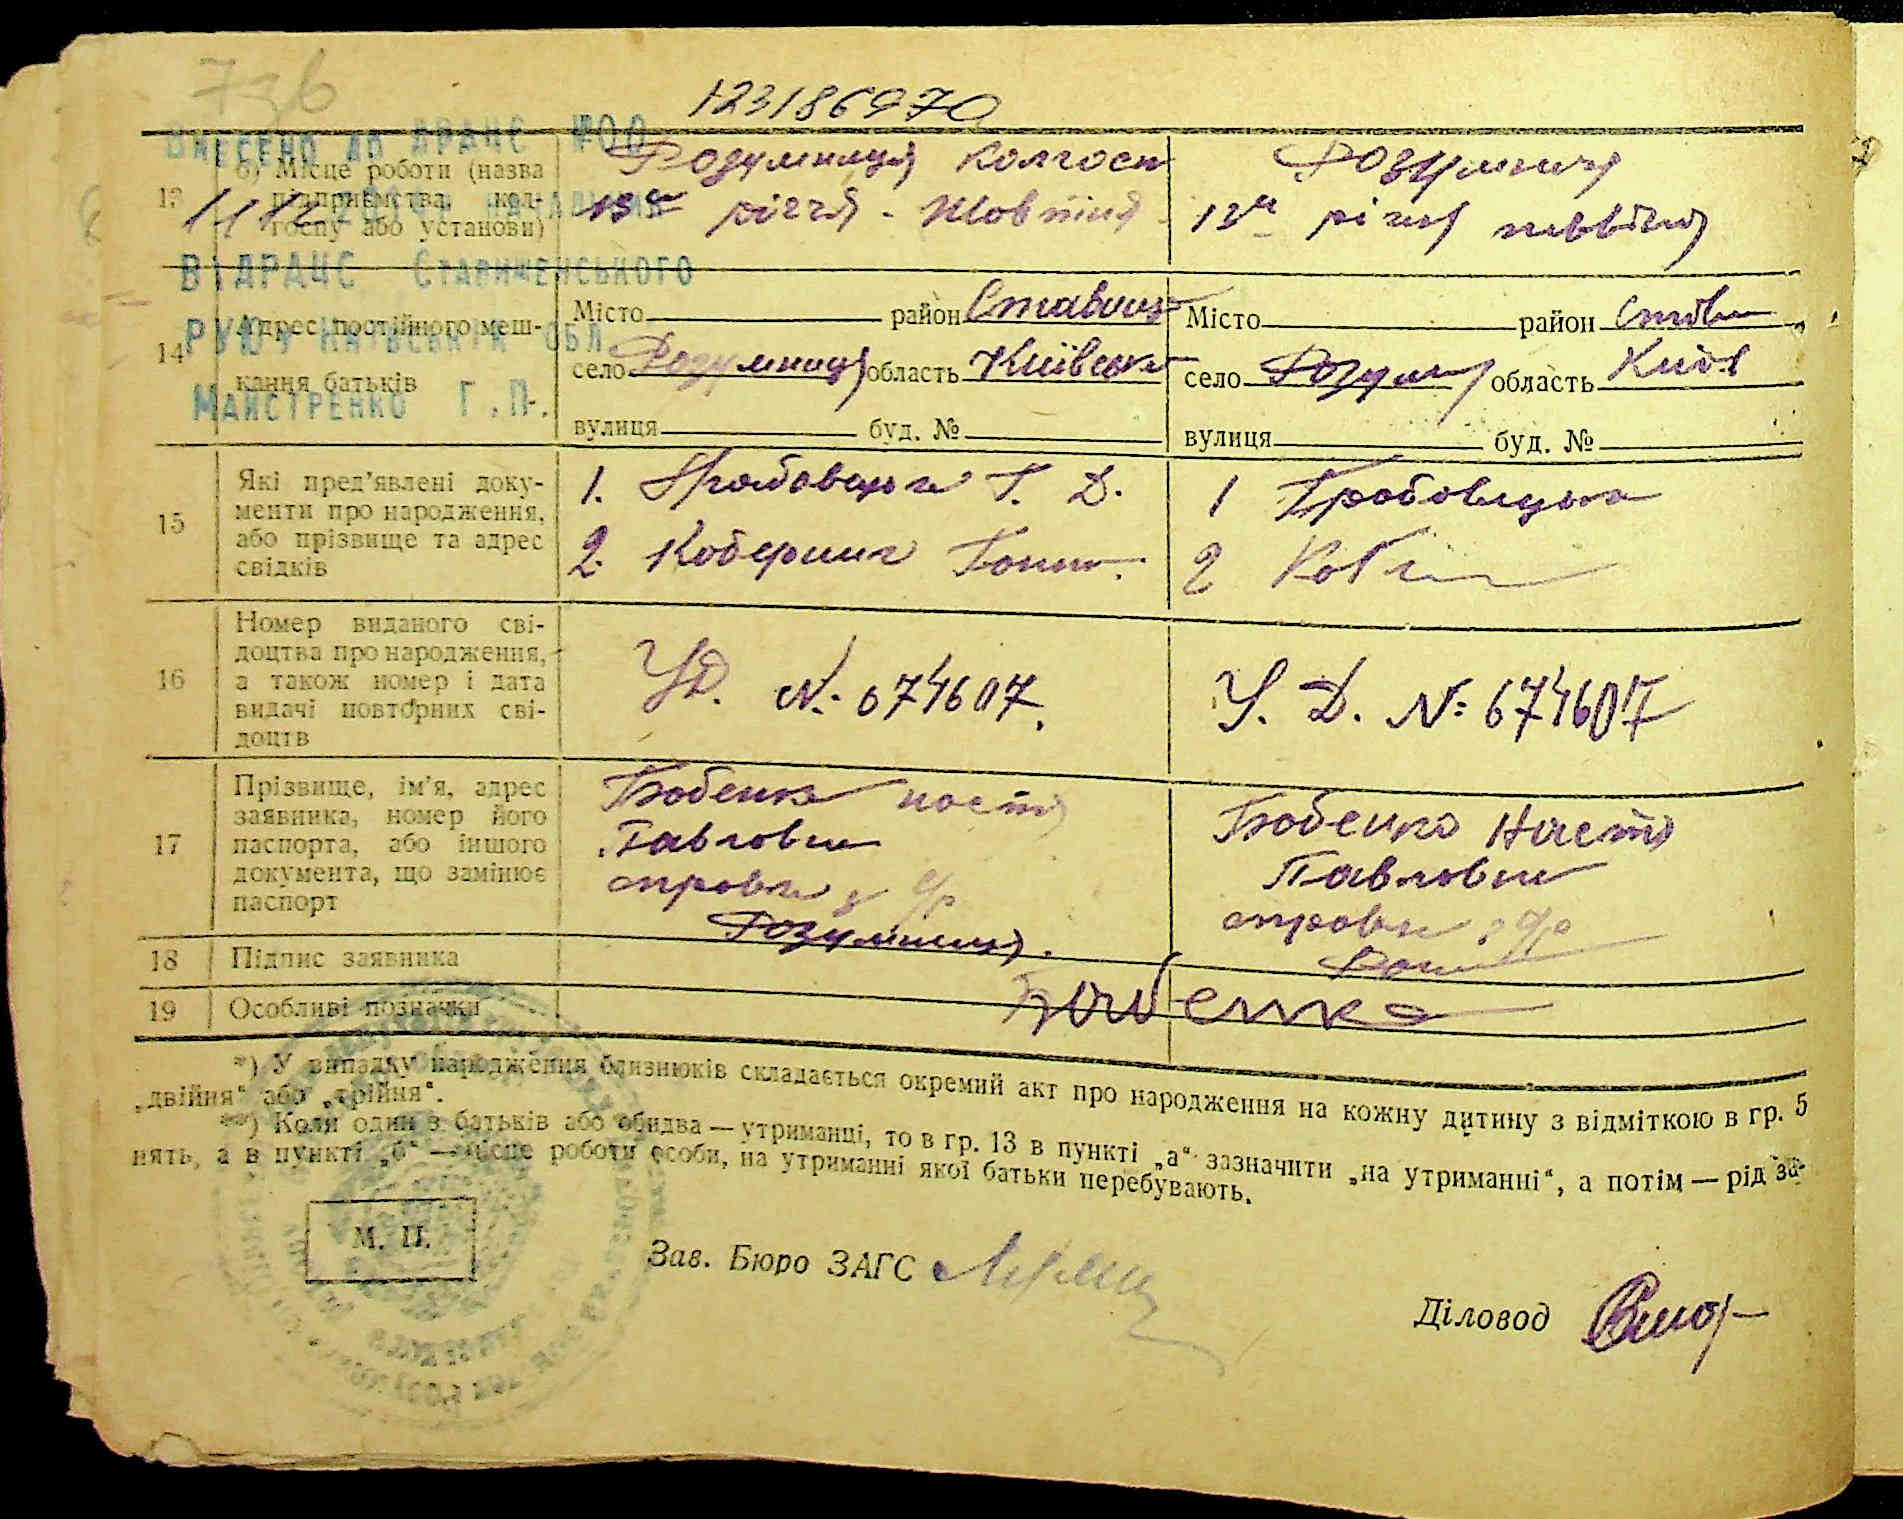 736
123186970
ВНЕСЕНО ДО ДРАЦС №00
13
б) Місце роботи (назва підприємства, кол- госпу або установи)
ВІДРАЦС СТАВИЩЕНСЬКОГО
МАЙСТРЕНКО Г.П.
Розумниця Колгосп
13та річчя Жовтня
Розумниця
13та річчя жовтня
14
Адрес постійного меш-
кання батьків
Місто район Ставищ
село Розумниця область Київськ
вулиця буд. №
Місто район Став
село Розумн область Київ
вулиця буд. №
15
Які пред'явлені доку-
менти про народження,
або прізвище та адрес
свідків
1. Грабовецька Г. Д.
2.
1 Грабовецька
2
16
Номер виданого сві-
доцтва про народження,
а також номер і дата
видачі повторних сві-
доцтв
УД. №: 674607.
У. Д. №: 674607
17
Прізвище, ім'я, адрес
заявника, номер його
паспорта, або іншого
документа, що замінює
паспорт
Бобенко Настя
Павловна
Розумниця.
Бобенко Настя
Павловна
18
Підпис заявника
Бобенко
19
Особливі позначки
*) У випадку народження близнюків складається окремий акт про народження на кожну дитину з відміткою в гр. 5
„двійня“ або „трійня“.
**) Коли один з батьків або обидва — утриманці, то в гр. 13 в пункті „а“ зазначити „на утриманні“, а потім — рід за-
нять, а в пункті „б“ — місце роботи особи, на утриманні якої батьки перебувають.
М. П.
Зав. Бюро ЗАГС
Діловод